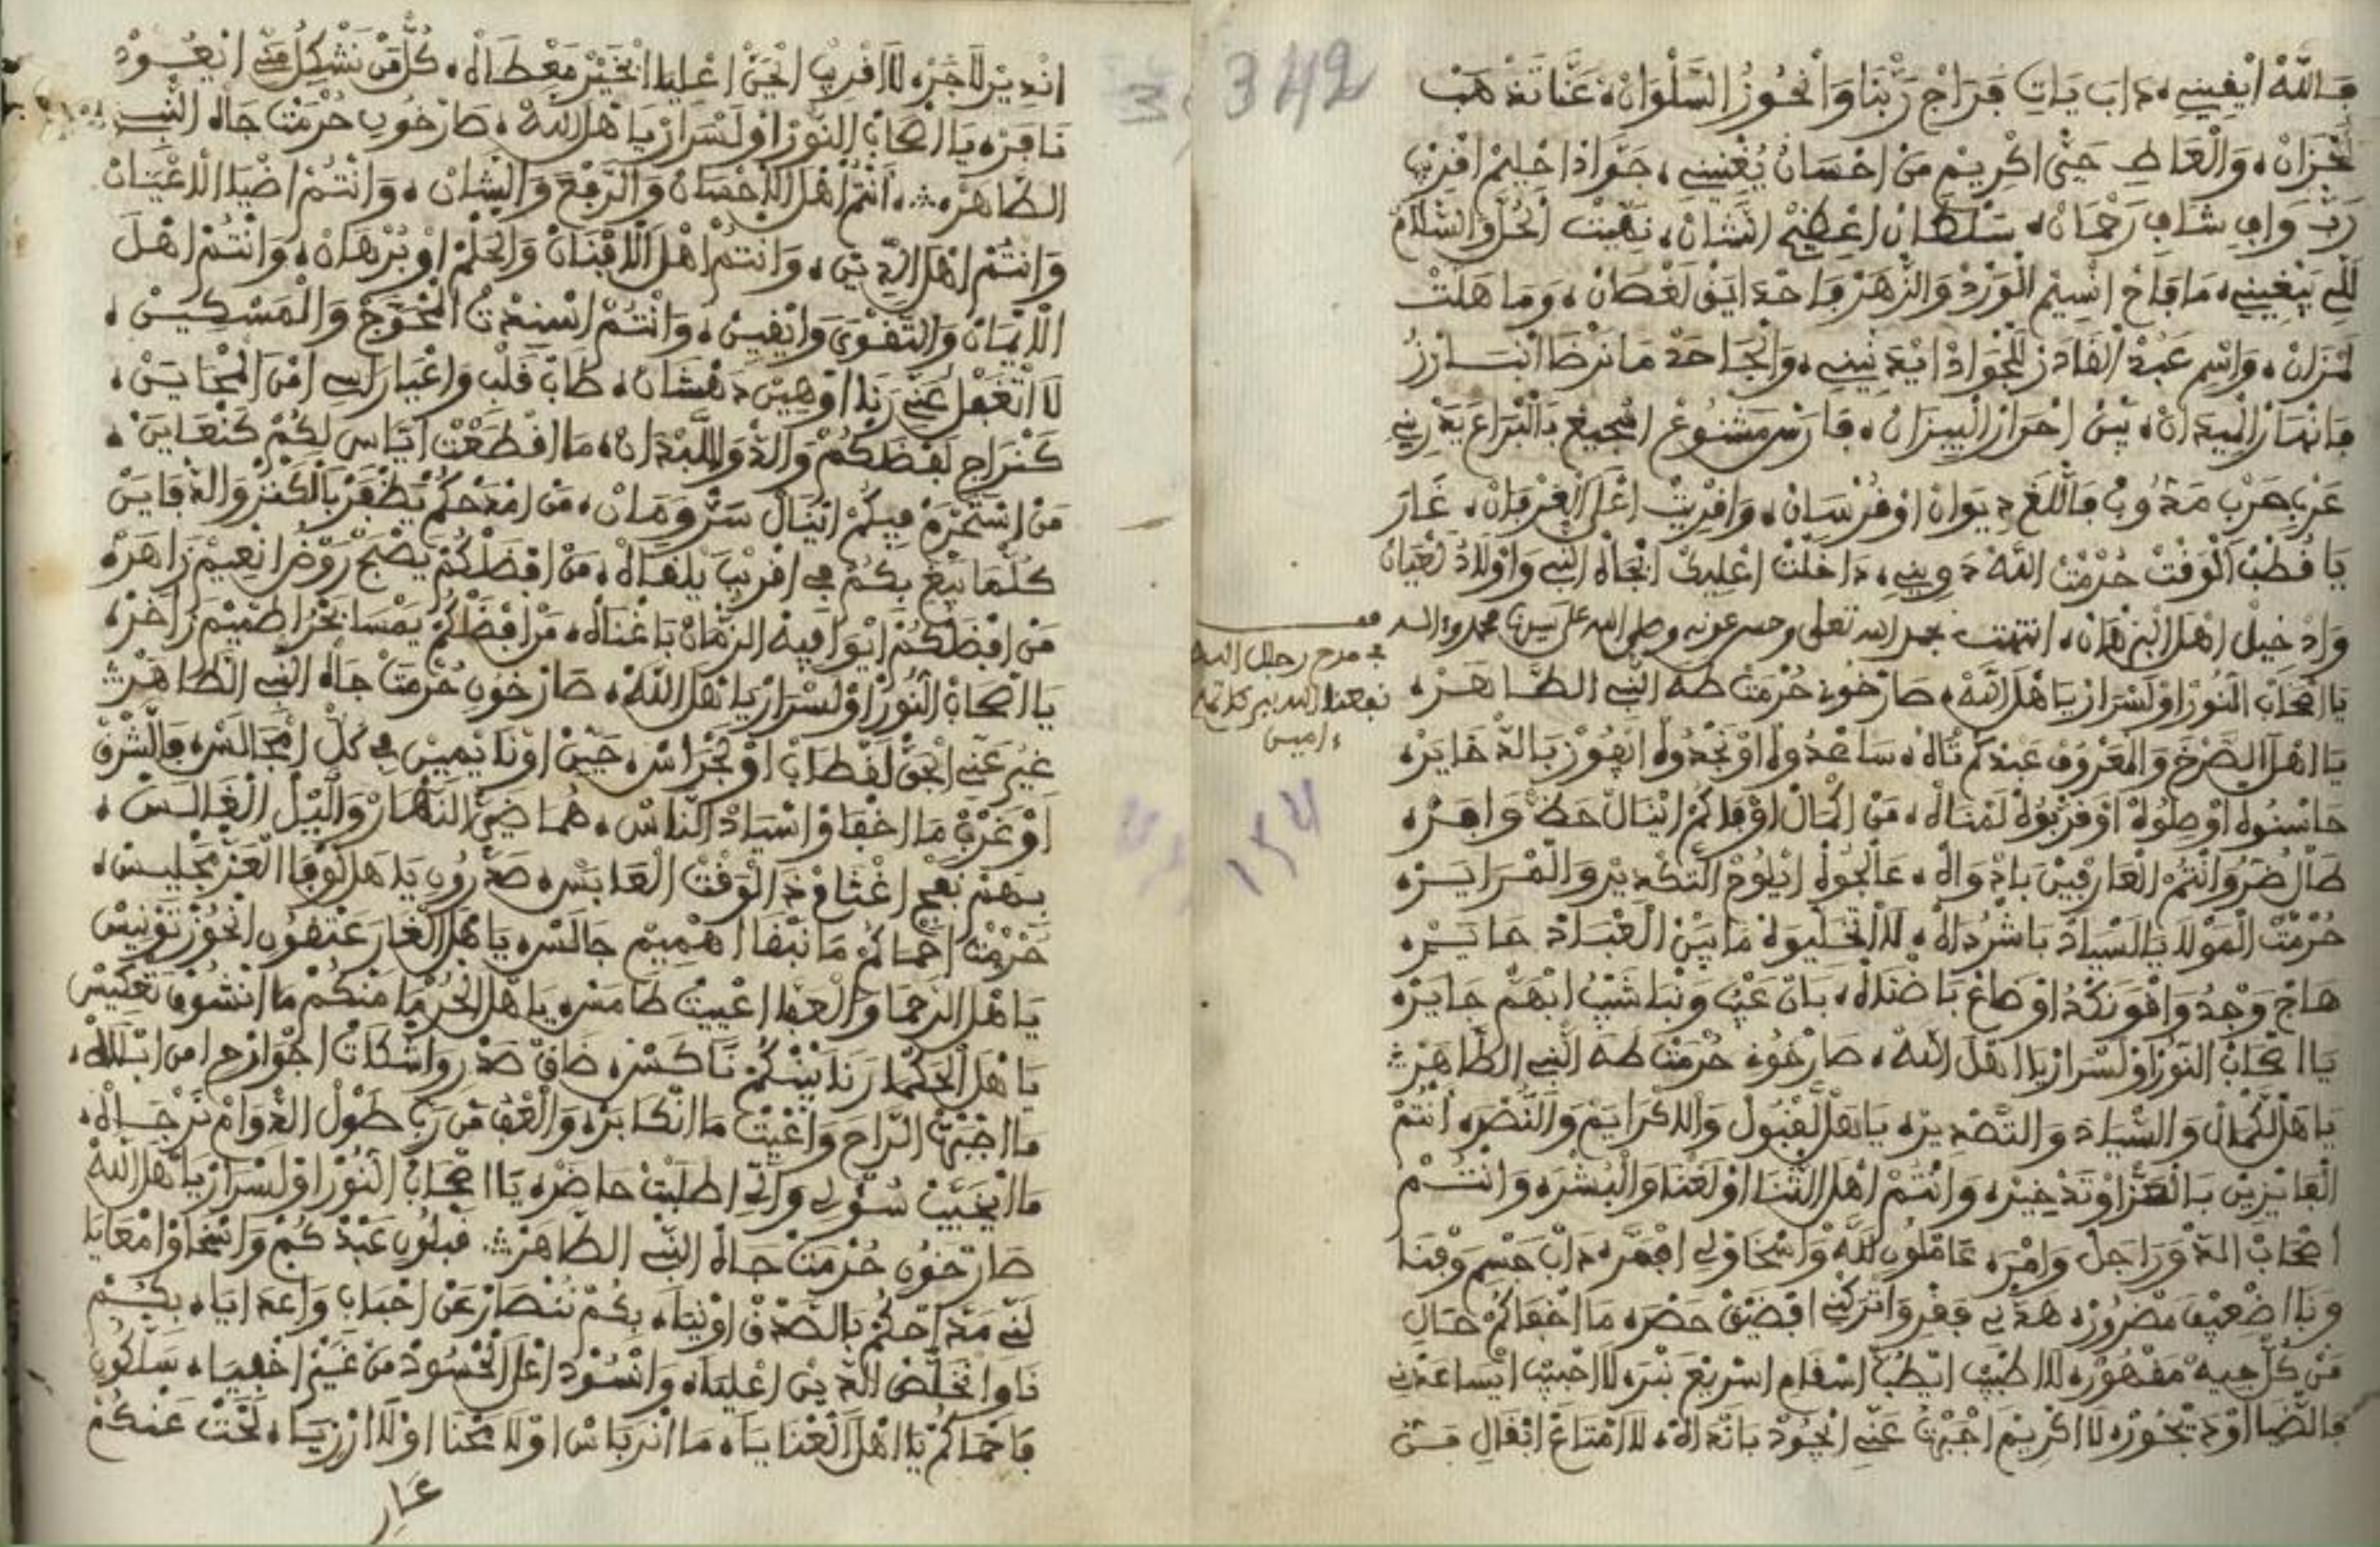 342
فالله ايفيني، داب يات فراج ربنا وانحوز السلوان، عنا تذهب
لحزان، والعاط حتى اكريم من احسان يغنيني، جواد احليم اقريب
رب واف شاف رحمان، سلطان اعظيم الشان، نهيت الحل والسلام
للي يبغيني، ما فاح انسيم الورد والزهر فاحدايق لغصان، وما هلت
لمزان، واسم عبد القادر للجواد ايدنيني، والجاحد ما نرضا انبارز
فانهار الميدان، بين احراز البيزان، فارس مشنوع اشجيع بالبراع يدريني
غرب هرب مذوب فاللغ ديوان او فرسان، وافريت اعل الغرفان، غار
يا قطب الوقت حرمت الله دويني، داخلت اعليك ابجاه النبي واولاد لعيان
واد خيل اهل البرهان، انتهت بحمد الله تعلى وحسن عونه وصلى الله على سيدنا محمد وءاله
في مدح رجال الله
نفعنا الله ببركاتهم
ءامين
يا اصحاب النور او لسرار يا هل الله، صارخون حرمت طه النبي الطاهره
يا اهل الصرخ والمعروف عبدكم تاله، ساعدوه او نجدوه ايفوز بالدخايره
حاسنوه او صلوه او قربوه لمناله، من اكمال اوفاكم اينال حظ وافره
طال ضرو وانتم العارفين بادواه، عالجوه ايلوح التكدير والمرايره
حرمت المولا يا لسياد باشرداله، لا اتخليوه ما بين العباد حايره
هاج وجد واقو نكد او ضاع باضناله، بان عيب ونبا شيب ابهم جايره
يا اصحاب النور او لسرار يا اهل الله، صارخون حرمت طه النبي الطاهره
يا هل الكمال والسياد والتصديره يا هل القبول والاكرايم والنصره انتم
الفايزين بالعز او تدخيره وانتم اهل الثنا او لغنا والبشره وانتم
اصحاب الدور اجل وامره عاملون لله واسخاولي افمره داب جسم وفنا
ونا اضعيف مضروره هدني فقر واتركني افضيق حضره ما اخفاكم حال
من كل جيه مقهوره لا اطبيب ايطب اسقام اسريع نبره لا احبيب ايساعدني
فالضيا او ديجوره لا اكريم اجبرت عني ايجود باتداله، لا امتاع انقال من
اندير لاجره لا اقريب ايحن اعليا الخير معطاله، كل من نشكل مني ايعود
نافره يا اصحاب النور او لسرار يا هل الله، صارخون حرمت جاه النبي
الطاهره، انتم اهل الاحسان والرفع والشان، وانتم اضيا الاعيان
وانتم اهل الدين، وانتم اهل الاقنان والحلم او برهان، وانتم اهل
الايمان والتقوى وايقين، وانتم اسيدت المحوج والمسكين،
لا اتغفل عني رنا اوهين دهشان، طاب قلب واعيا راسي امن المحاين،
كنراج لفضكم والد وللبدان، ما اقطعت اياس لكم كنعاين،
من استحرم فيكم اينال سر ومان، من امدحكم يظفر بالكنز والدفاين
كلما يبغ بكم في اقريب يلقاله، من اقصدكم يصبح روض انعيم زاهره
من اقبضكم ايوافيه الزمان باغناله، من اقبضكم يمسا بحر اطميم زاخره
يا اصحاب النور او لسرار يا هل الله، صارخون حرمت جاه النبي الطاهره
غير عني الحق لقطاب او لجراس، حين او نا يمين في كل امجالسه فالشرق
او غرب ما اخفاو اسياد الناس، هما ضي النهار والليل الغالس،
بهم نفج اغثا في ذا الوقت العابسه صدرون يا هل الوفا العز مجليس،
حرمت احماكم ما نبقا اهميم جالسه يا هل الغار عتقون انحوز تونيس
يا هل الرحما والعفا اعييت طامسه يا هل الحرما منكم ما انشوف تعكيس
يا هل الحكما رنا بينكم ناكسه ضاق صدر واشكات اجوارح امن ابلاله،
ما اجبرت الراح واعييت ما انكابره والعف من رب طول الدوام نرجاله،
ما ايخيب سولي واني اطلبت حاضره يا اصحاب النور او لسرار يا هل الله
صارخون حرمت جاه النبي الطاهره قبلون عبدكم واسخاو امعايا
لني مداحكم بالصدق او نيا، بكم ننصار عن احباب واعدايا، بكم
ناوا نخلص الدين اعليا، وانسود اعل الحسود من غير اخفيا، سلكون
فاحماكم يا اهل العنايا، ما انربا س اولا محنا اولا ارزيا، لحت عنكم
عار